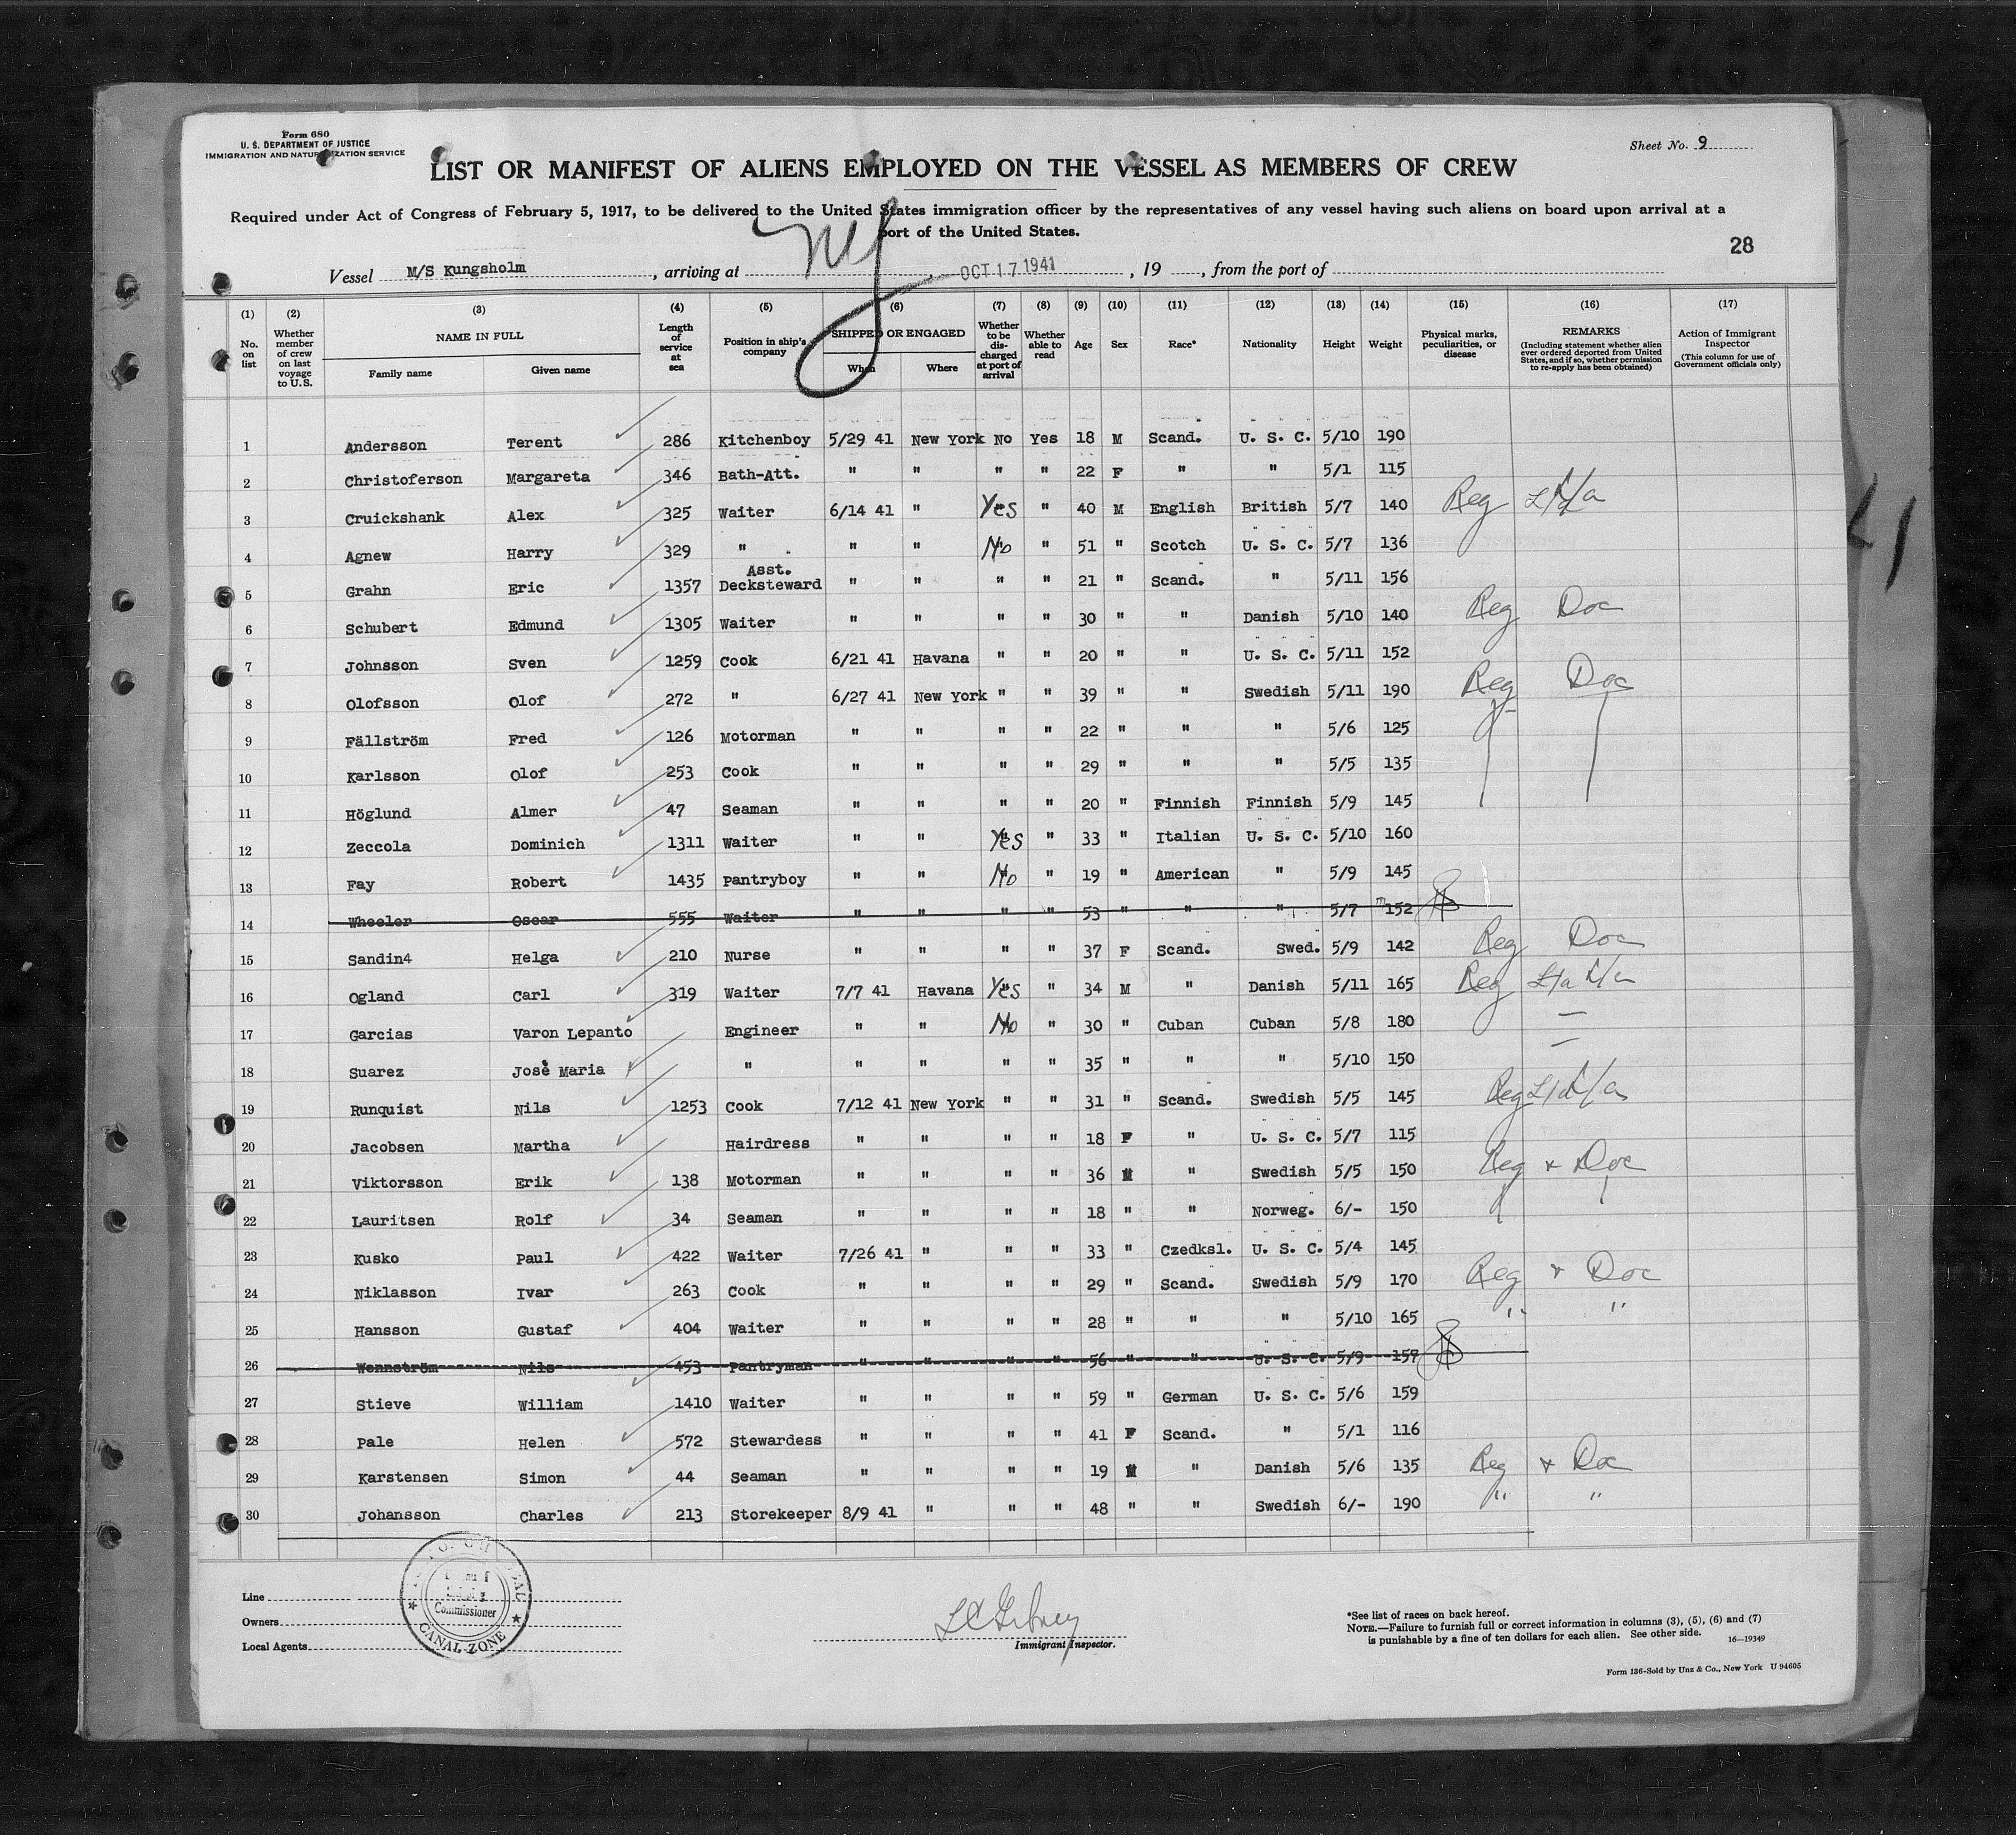 Form 680
U. S. DEPARTMENT OF JUSTICE
IMMIGRATION AND NATURALIZATION SERVICE
Sheet No. 9
LIST OR MANIFEST OF ALIENS EMPLOYED ON THE VESSEL AS MEMBERS OF CREW
Required under Act of Congress of February 5, 1917, to be delivered to the United States immigration officer by the representatives of any vessel having such aliens on board upon arrival at a
port of the United States.
28
Vessel M/S Kungsholm, arriving at NY, OCT 17 1941, 19, from the port of
(1) (2) (3) (4) (5) (6) (7) (8) (9) (10) (11) (12) (13) (14) (15) (16) (17)
No. on list
Whether member of crew on last voyage to U.S.
NAME IN FULL
Family name Given name
Length of service at sea
Position in ship's company
SHIPPED OR ENGAGED
When Where
Whether to be discharged at port of arrival
Whether able to read
Age
Sex
Race*
Nationality
Height
Weight
Physical marks, peculiarities, or disease
REMARKS
(Including statement whether alien ever ordered deported from United States, and if so, whether permission to re-apply has been obtained)
Action of Immigrant Inspector
(This column for use of Government officials only)
1 Andersson Terent 286 Kitchenboy 5/29 41 New York No Yes 18 M Scand. U. S. C. 5/10 190
2 Christoferson Margareta 346 Bath-Att. " " " " 22 F " " 5/1 115
3 Cruickshank Alex 325 Waiter 6/14 41 " Yes " 40 M English British 5/7 140 Reg
4 Agnew Harry 329 " " " No " 51 " Scotch U. S. C. 5/7 136
5 Grahn Eric 1357 Asst. Decksteward " " " " 21 " Scand. " 5/11 156
6 Schubert Edmund 1305 Waiter " " " " 30 " " Danish 5/10 140 Reg Doc
7 Johnsson Sven 1259 Cook 6/21 41 Havana " " 20 " " U. S. C. 5/11 152
8 Olofsson Olof 272 " 6/27 41 New York " " 39 " " Swedish 5/11 190 Reg Doc
9 Fällström Fred 126 Motorman " " " " 22 " " " 5/6 125
10 Karlsson Olof 253 Cook " " " " 29 " " " 5/5 135
11 Höglund Almer 47 Seaman " " " " 20 " Finnish Finnish 5/9 145
12 Zeccola Dominich 1311 Waiter " " Yes " 33 " Italian U. S. C. 5/10 160
13 Fay Robert 1435 Pantryboy " " No " 19 " American " 5/9 145
14 Wheeler Oscar 555 Waiter " " " " 53 " " " 5/7 152
15 Sandin4 Helga 210 Nurse " " " " 37 F Scand. Swed. 5/9 142 Reg Doc
16 Ogland Carl 319 Waiter 7/7 41 Havana Yes " 34 M " Danish 5/11 165 Reg
17 Garcias Varon Lepanto Engineer " " No " 30 " Cuban Cuban 5/8 180 —
18 Suarez José Maria " " " " " 35 " " " 5/10 150 —
19 Runquist Nils 1253 Cook 7/12 41 New York " " 31 " Scand. Swedish 5/5 145 Reg
20 Jacobsen Martha Hairdress " " " " 18 F " U. S. C. 5/7 115
21 Viktorsson Erik 138 Motorman " " " " 36 M " Swedish 5/5 150 Reg + Doc
22 Lauritsen Rolf 34 Seaman " " " " 18 " " Norweg. 6/- 150
23 Kusko Paul 422 Waiter 7/26 41 " " " 33 " Czedksl. U. S. C. 5/4 145
24 Niklasson Ivar 263 Cook " " " " 29 " Scand. Swedish 5/9 170 Reg + Doc
25 Hansson Gustaf 404 Waiter " " " " 28 " " " 5/10 165 " "
26 Wennström Nils 453 Pantryman " " " " 56 " " U. S. C. 5/9 157
27 Stieve William 1410 Waiter " " " " 59 " German U. S. C. 5/6 159
28 Pale Helen 572 Stewardess " " " " 41 F Scand. " 5/1 116
29 Karstensen Simon 44 Seaman " " " " 19 M " Danish 5/6 135 Reg + Doc
30 Johansson Charles 213 Storekeeper 8/9 41 " " " 48 " " Swedish 6/- 190 " "
Line
Owners
Local Agents
Commissioner
CANAL ZONE
Immigrant Inspector.
*See list of races on back hereof.
NOTE.—Failure to furnish full or correct information in columns (3), (5), (6) and (7)
is punishable by a fine of ten dollars for each alien. See other side.
16—19349
Form 136-Sold by Unz & Co., New York U 94605